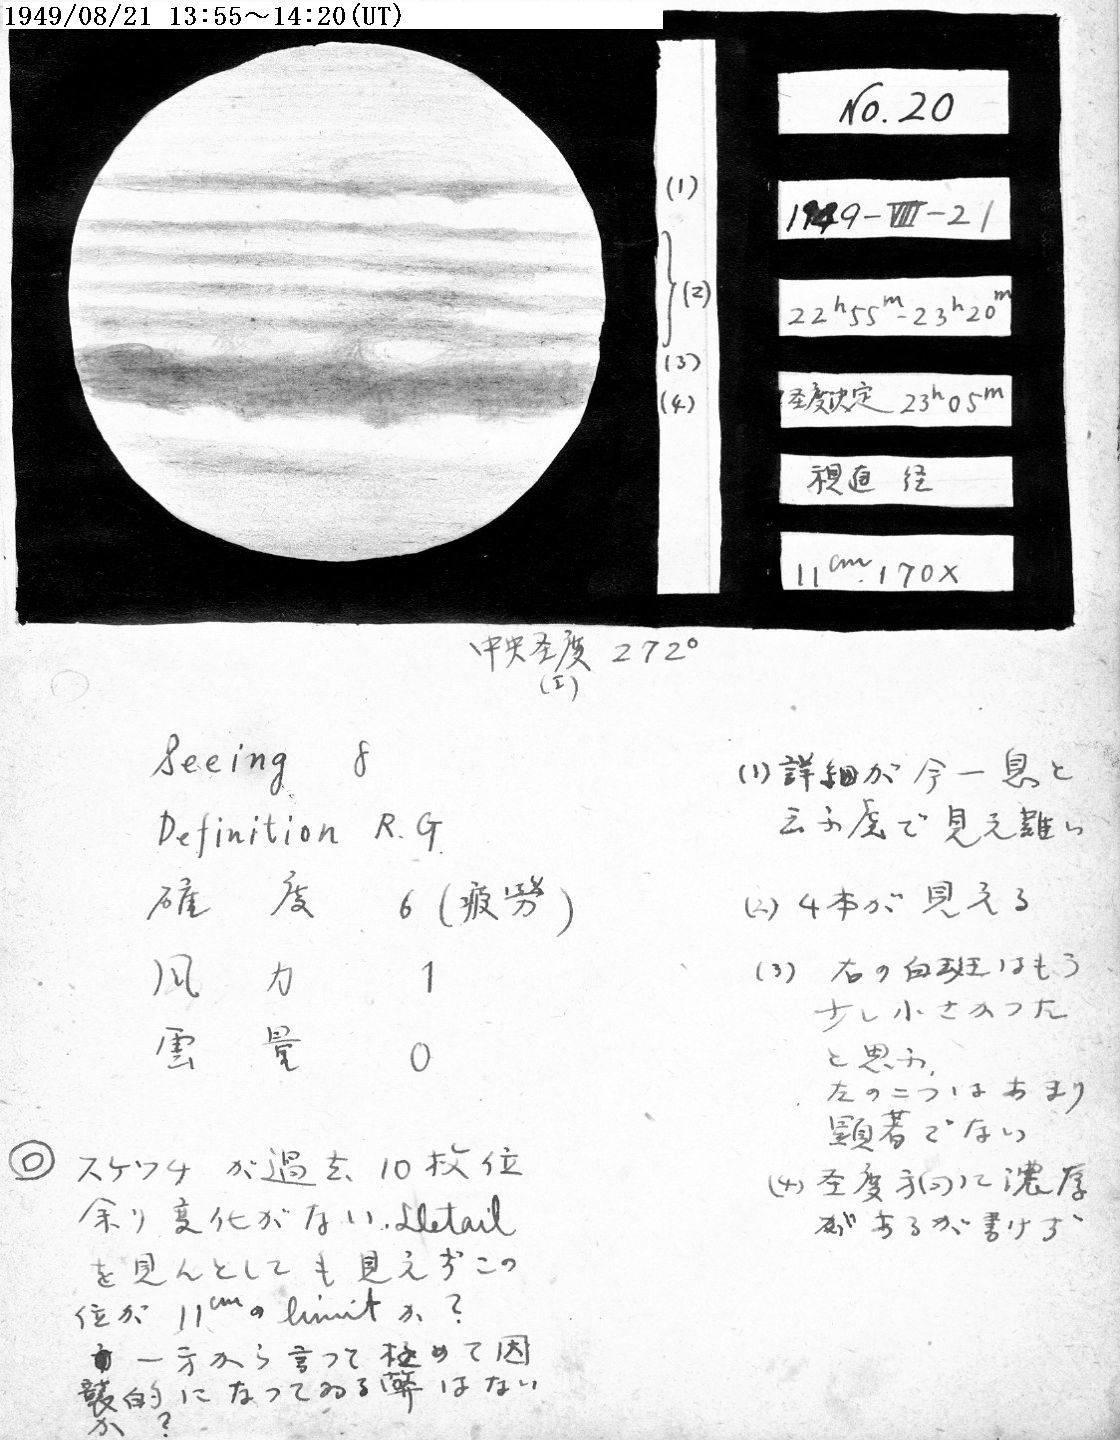 1949/08/21 13:55～14:20(UT)
No. 20
1949-VIII-21
22h55m-23h20m
圣度决定 23h05m
視直 径
11cm. 170x
(1)
(2)
(3)
(4)
中央圣度 272°
(I)
Seeing 8
Definition R.G
確 度 6 (疲労)
風 力 1
雲 量 0
(1) 詳細が今一息と
云ふ處で見え難い
(2) 4本が見える
(3) 右の白斑はもう
少し小さかつた
と思ふ.
左の二つはあまり
顕著でない
(4) 圣度方向に濃厚
があるが書けず
◎ スケッチが過去 10枚位
余り変化がない. Detail
を見んとしても見えずこの
位が 11cmの limitか?
一方から言つて極めて因
襲的になつてゐる弊はない
か?